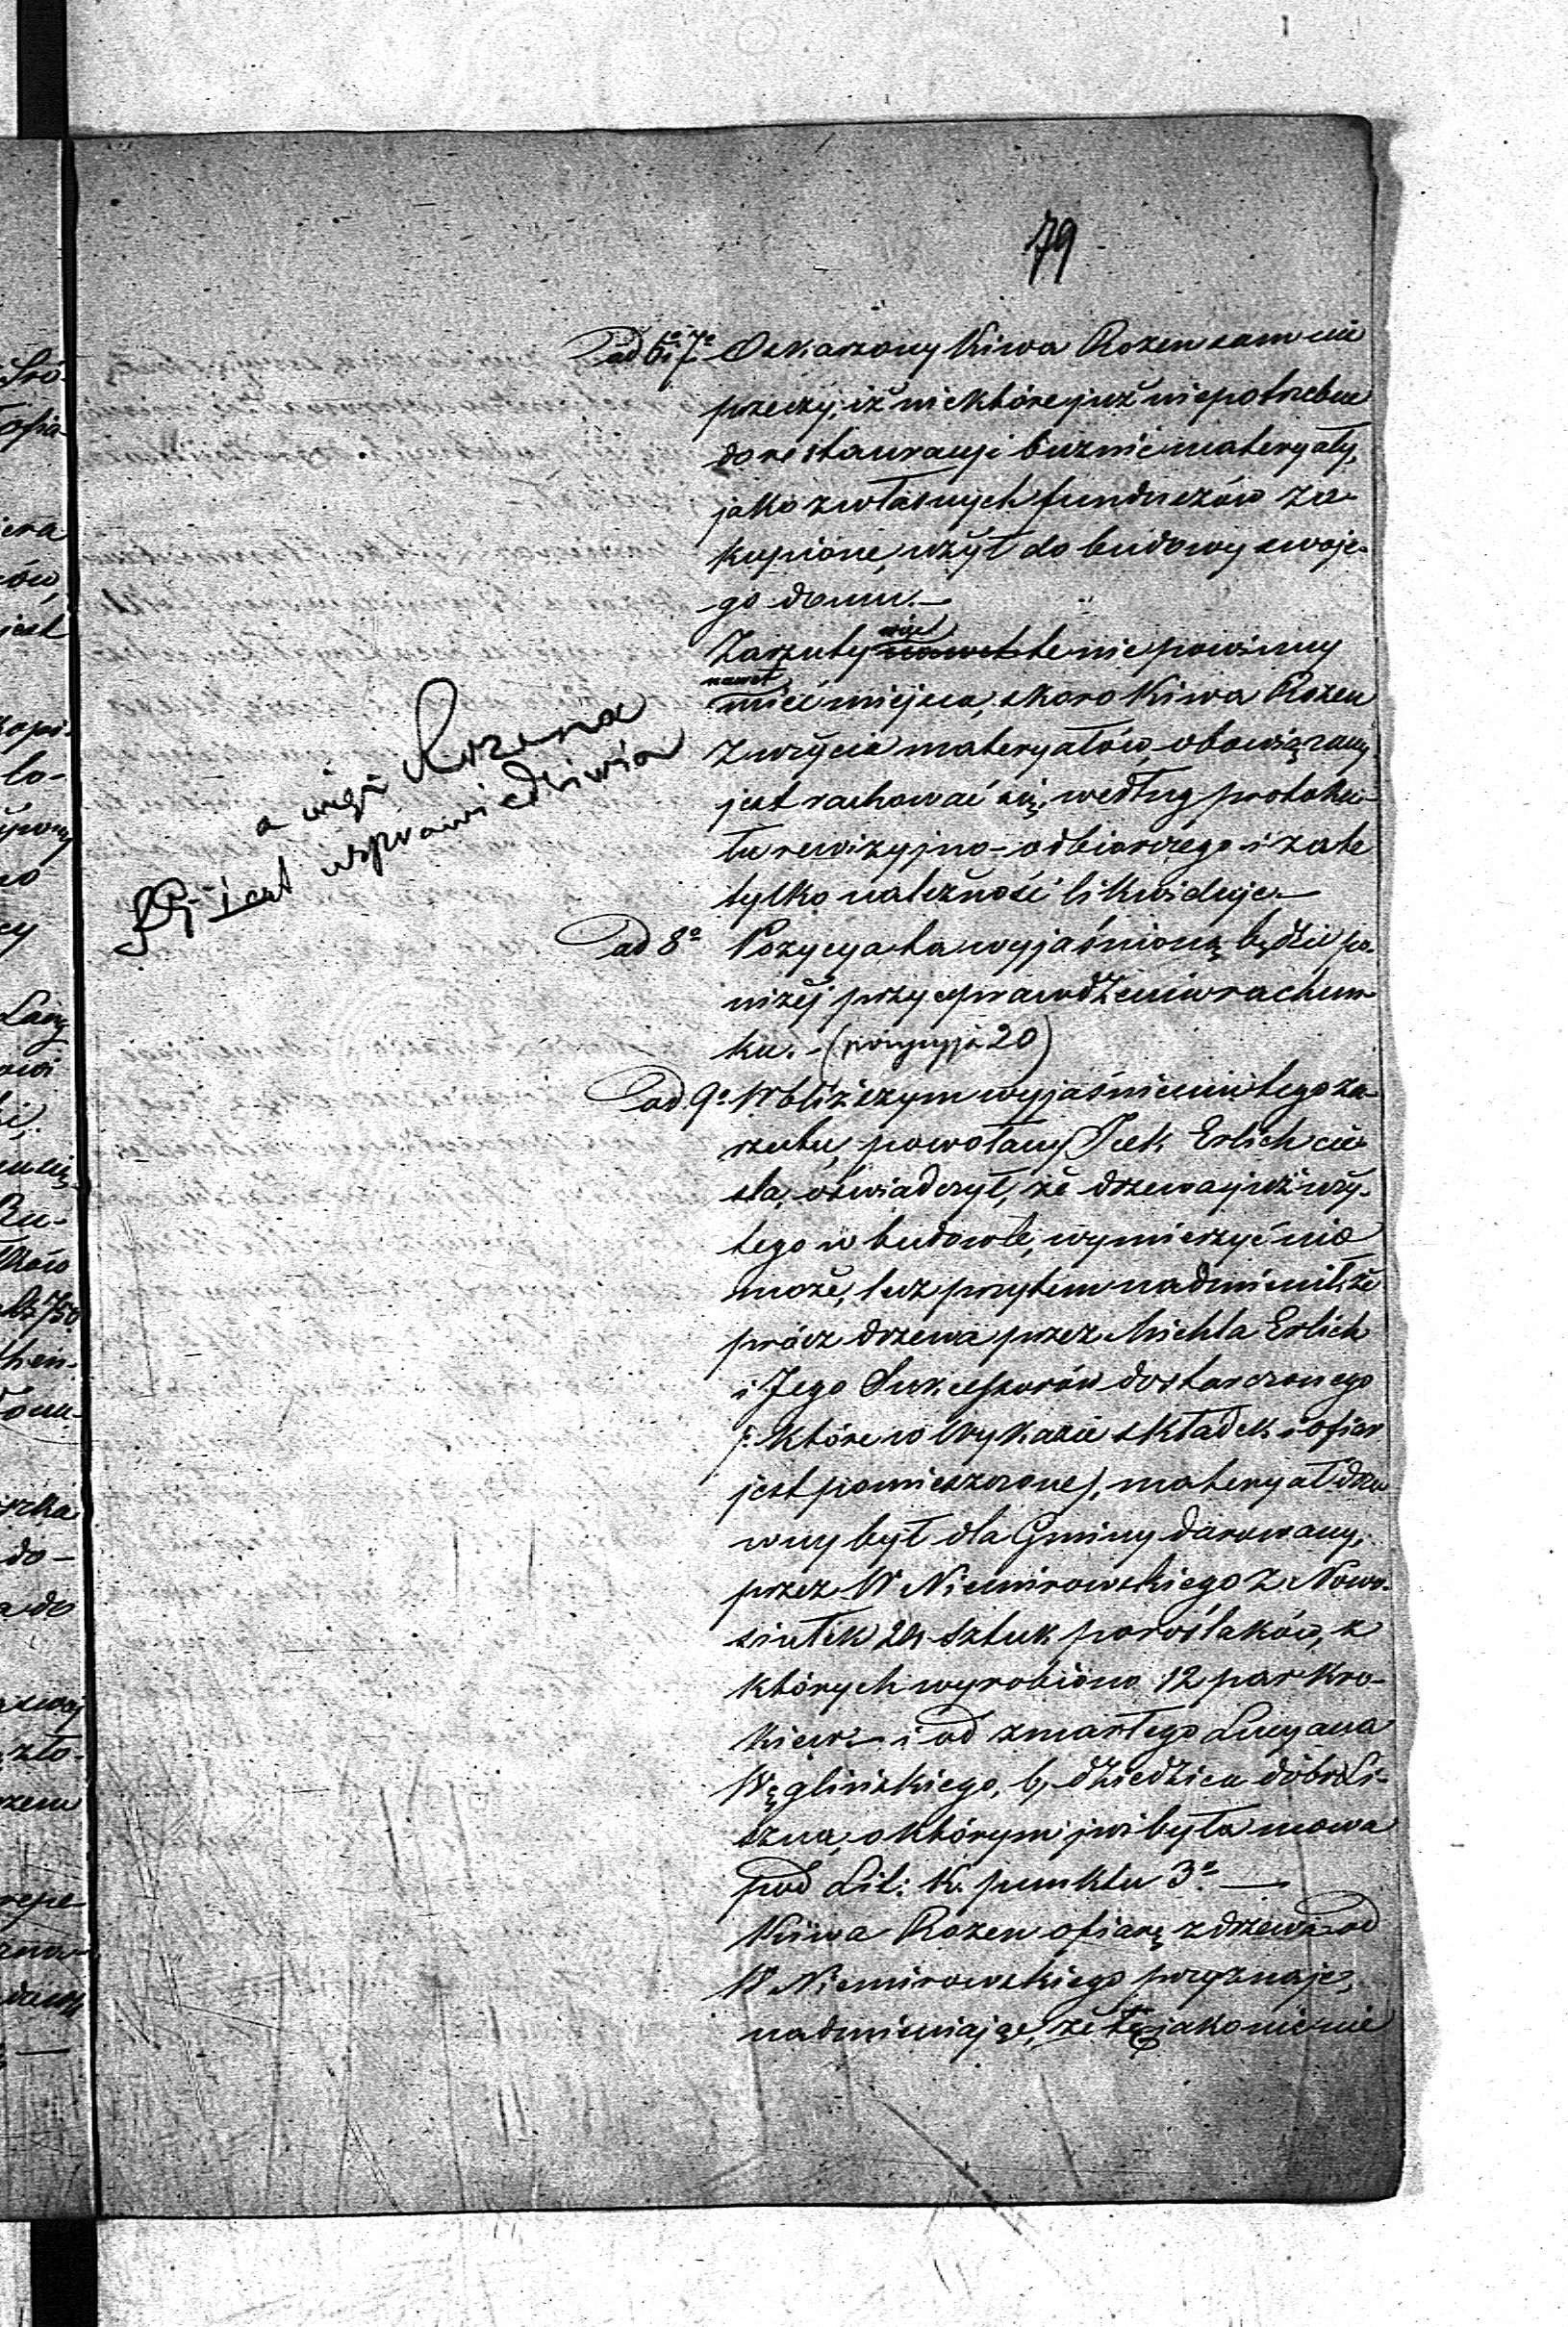 79
ad 6º i 7º Oskarzony Kiwa Rozen sam nie
przeczy, iż niektóre już niepotrzebne
do restauracyi bużnic materyały,
jako z własnych funduszów za-
kupione, użył do budowy swoje-
go domu.—
Zarzuty więc nawet te nie powinny
nawet
mieć miejsca, skoro Kiwa Rozen
z użycia materyałów, obowiązany
jest rachować się, według protoku-
łu rewizyjno-odbiorczego i za te
tylko należność likwiduje.—
a więc Rozena
jest usprawiedliwia
ad 8º Pozycya ta wyjaśnioną będzie po-
niżej przy sprawdzeniu rachun-
ku. - (pozycyja 20)
ad 9º W bliższym wyjaśnieniu tego za-
rzutu, powołany Icek Erlich cie-
sla, oświadczył, że drzewa już uży-
tego w budowle, wymierzyć nie
może, lecz przytem nadmienił, że
prócz drzewa przez Michla Erlich
i Jego Sukcessorów dostarczonego
/: które w Wykazie składek i ofiar
jest pomieszczone/, materyał drze
wny był dla Gminy darowany,
przez W Niemirowskiego z Nowo-
siułek 24 sztukporoślaków, z
których wyrobiono 12 par kro-
kiew:— i od zmarłego Lucyana
Węglińskiego, b, dziedzica dóbr Li-
szna, o którym już była mowa
pod Lit: K. punktu 3º.—
Kiwa Rozen ofiarę z drzewa od
W Niemirowskiego przyznaje,
nadmieniając, że tę jako nie